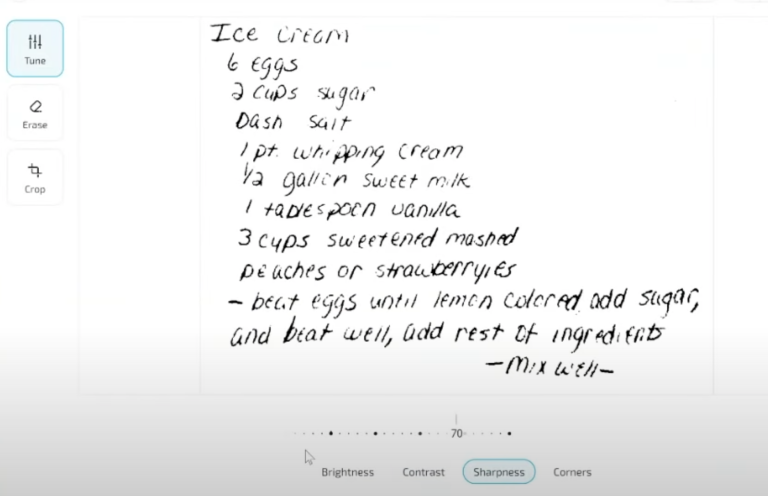 Tune
Erase
Crop
Ice cream
6 eggs
2 cups sugar
Dash salt
1 pt. whipping cream
1/2 gallon sweet milk
1 tablespoon vanilla
3 cups sweetened mashed
peaches or strawberryies
- beat eggs until lemon colored add sugar,
and beat well, add rest of ingredients
- Mix well -
70
Brightness Contrast Sharpness Corners